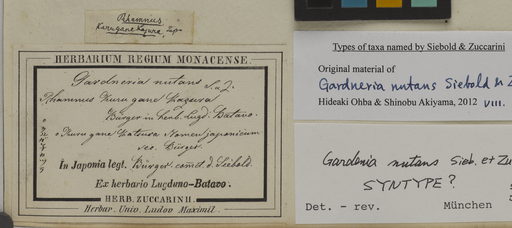 Rhamnus
Kurugane Kazura, Jap.
HERBARIUM REGIUM MONACENSE.
Gardneria nutans S. u. Z.
Rhamnus Kuru gane Kazura
Bürger in herb. Lugd. Batavo.
Kuru gane Katsura Nomen japonicum
sec. Bürger.
In Japonia legt. Bürger comet. d. Siebold.
Ex herbario Lugduno-Batavo.
HERB. ZUCCARINII.
Herbar. Univ. Ludov Maximil.
Types of taxa named by Siebold & Zuccarini
Original material of
Gardneria nutans Siebold & Z
Hideaki Ohba & Shinobu Akiyama, 2012 VIII.
Gardenia nutans Sieb. et Zu
SYNTYPE?
Det. - rev. München